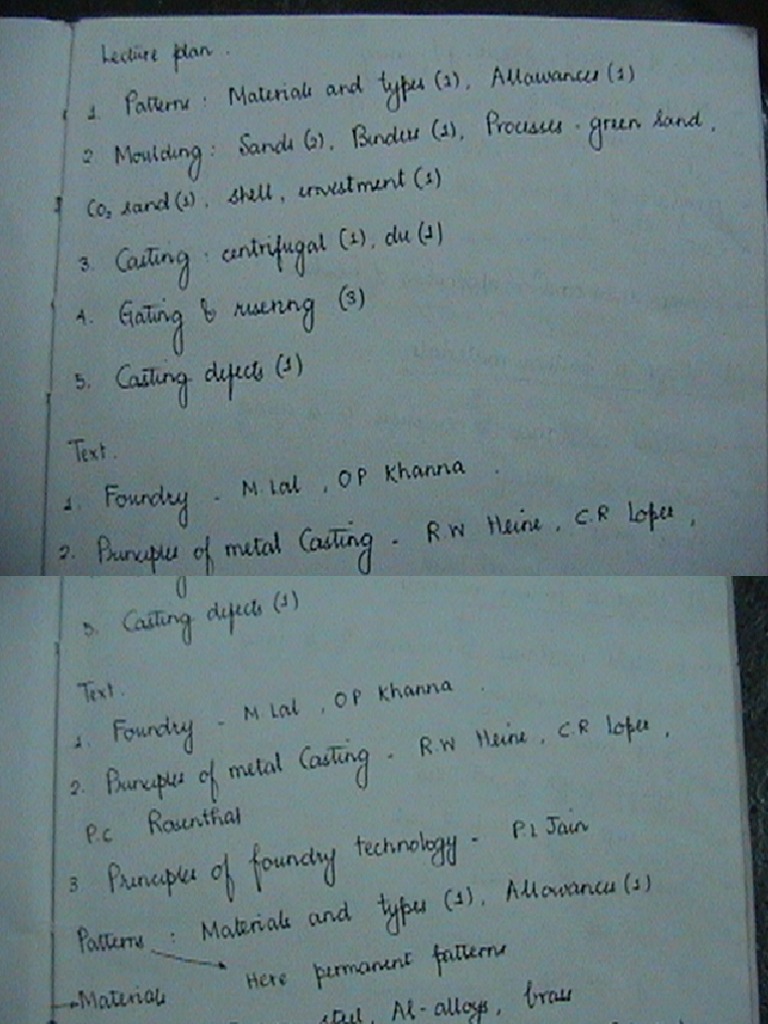 Lecture plan.
1. Patterns : Materials and types (1), Allowances (1)
2 Moulding : Sands (2), Binders (1), Processes - green sand,
CO2 sand (1), shell, investment (1)
3. Casting : centrifugal (1), die (1)
4. Gating & risering (3)
5. Casting defects (1)
Text.
1. Foundry - M. Lal, OP Khanna
2. Principles of metal Casting - R W Heine, C.R Loper,
5. Casting defects (1)
Text.
1. Foundry - M. Lal, OP Khanna
2. Principles of metal Casting - R.W Heine, C.R Loper,
P.C Rosenthal
3 Principles of foundry technology - P.L Jain
Patterns : Materials and types (1), Allowances (1)
Here permanent patterns
Materials
steel, Al-alloys, brass